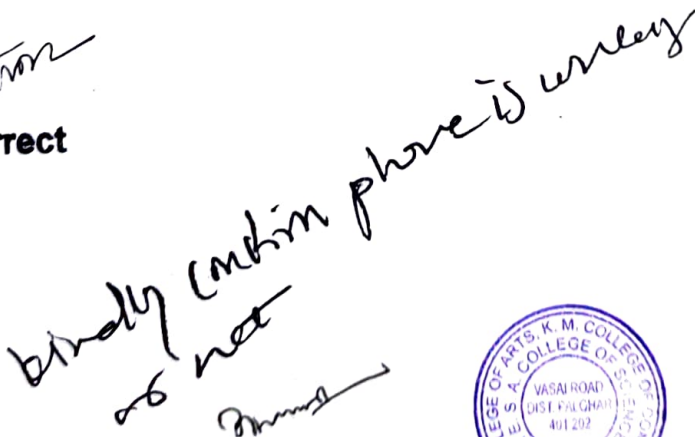 rrect
kindly confirm phone is
or not
COLLEGE OF ARTS, K. M. COLLEGE OF COM
E. S. A. COLLEGE OF SCIENCE
VASAI ROAD
DIST. PALGHAR
401 202